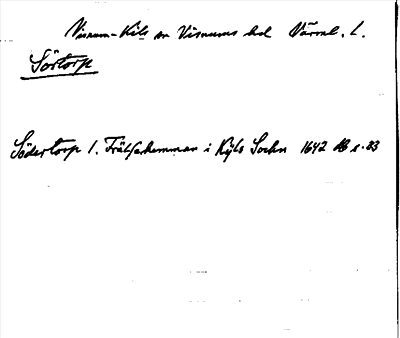 Visnum-Kils sn Visnums hd Värml. l.
Sörtorp
Södertorp 1. Frälsehemman i Kÿls Sochn 1642 JB s. 83